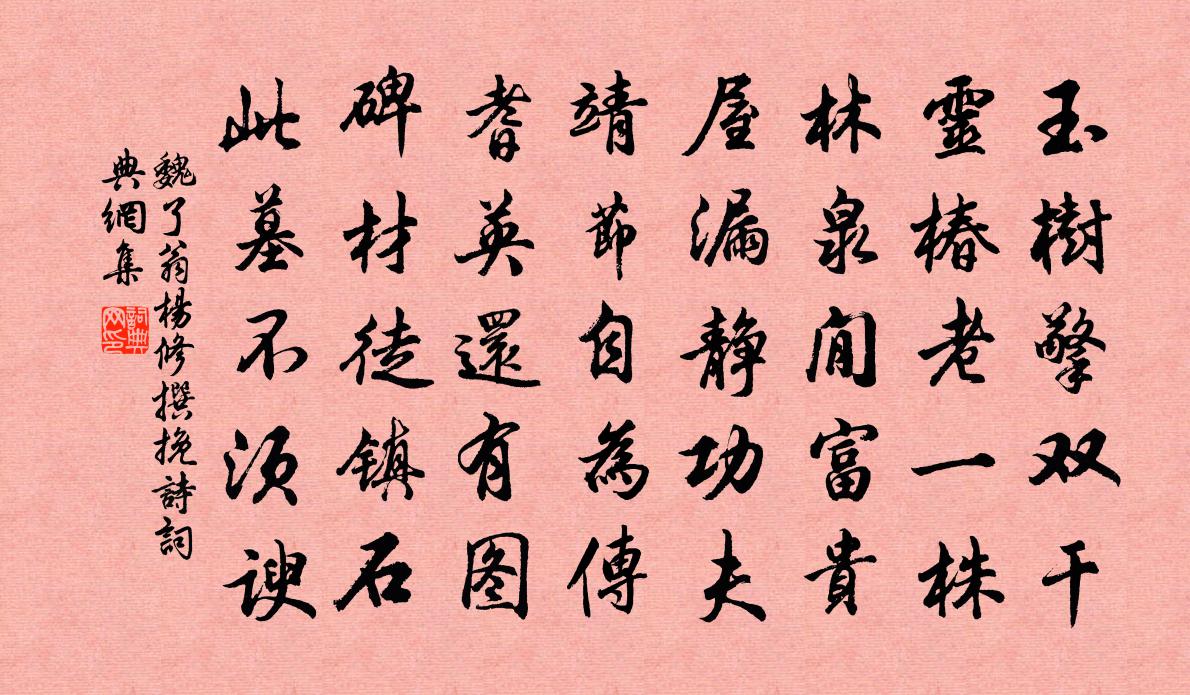 玉樹擎双干
靈椿老一株
林泉閒富貴
屋漏静功夫
靖節自為傳
耆英還有图
碑材徒鎮石
此墓不須諛
魏了翁楊修撰挽詩詞
典網集
詞典网印